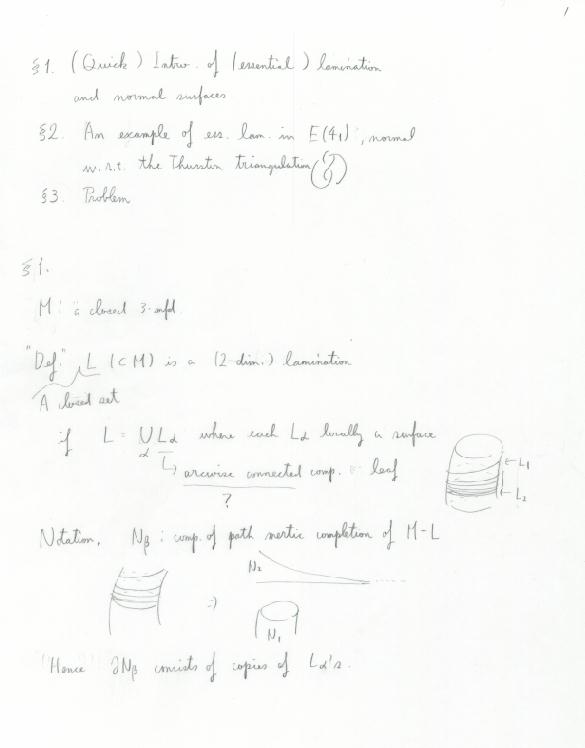 1
§1. (Quick) Intro. of (essential) lamination
and normal surfaces
§2. An example of ess. lam. in E(4₁), normal
w.r.t. the Thurston triangulation (?)
§3. Problem
§1.
M : a closed 3-mfd.
"Def" L (⊂ M) is a (2-dim.) lamination
A closed set
if L = ∪_α L_α where each L_α locally a surface
arcwise connected comp. leaf
?
←L₁
←L₂
Notation. N_β : comp. of path metric completion of M-L
N₂
⇒)
N₁
"Hence" ∂N_β consists of copies of L_α's.